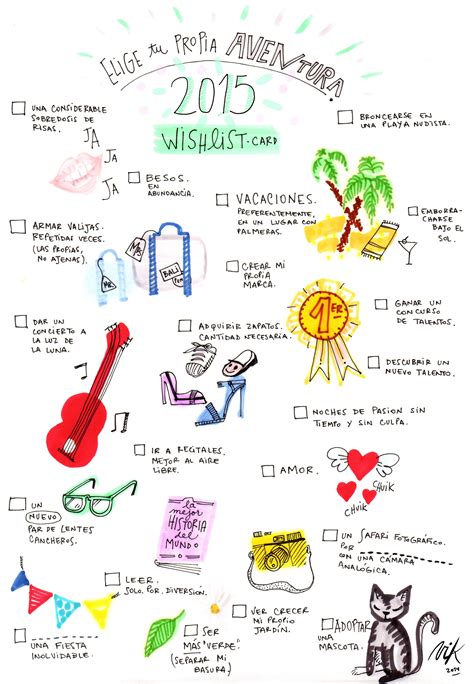 ELIGE tu PROPIA AVENTURA
2015
WISHLIST-CARD
UNA CONSIDERABLE
SOBREDOSIS DE
RISAS.
JA
JA
JA
BRONCEARSE EN
UNA PLAYA NUDISTA.
BESOS.
EN
ABUNDANCIA.
VACACIONES.
PREFERENTEMENTE,
EN UN LUGAR CON
PALMERAS.
EMBORRA-
CHARSE
BAJO EL
SOL.
ARMAR VALIJAS.
REPETIDAS VECES.
(LAS PROPIAS,
NO AJENAS).
BALI
CREAR MI
PROPIA
MARCA.
1ER
GANAR UN
CONCURSO
DE TALENTOS.
DAR UN
CONCIERTO A
LA LUZ DE
LA LUNA.
ADQUIRIR ZAPATOS.
CANTIDAD NECESARIA.
DESCUBRIR UN
NUEVO TALENTO.
NOCHES DE PASION SIN
TIEMPO Y SIN CULPA.
IR A RECITALES.
MEJOR AL AIRE
LIBRE.
AMOR.
CHUIK
CHUIK
UN
NUEVO
PAR DE LENTES
CANCHEROS.
la
mejor
HISTORIA
del
MUNDO
UN SAFARI FOTOGRÁFICO.
POR
CON UNA CÁMARA
ANALÓGICA.
LEER.
SOLO. POR. DIVERSION.
VER CRECER
MI PROPIO
JARDÍN.
ADOPTAR
UNA
MASCOTA.
UNA FIESTA
INOLVIDABLE.
SER
MAS "VERDE".
(SEPARAR MI
BASURA.)
Vik
2014